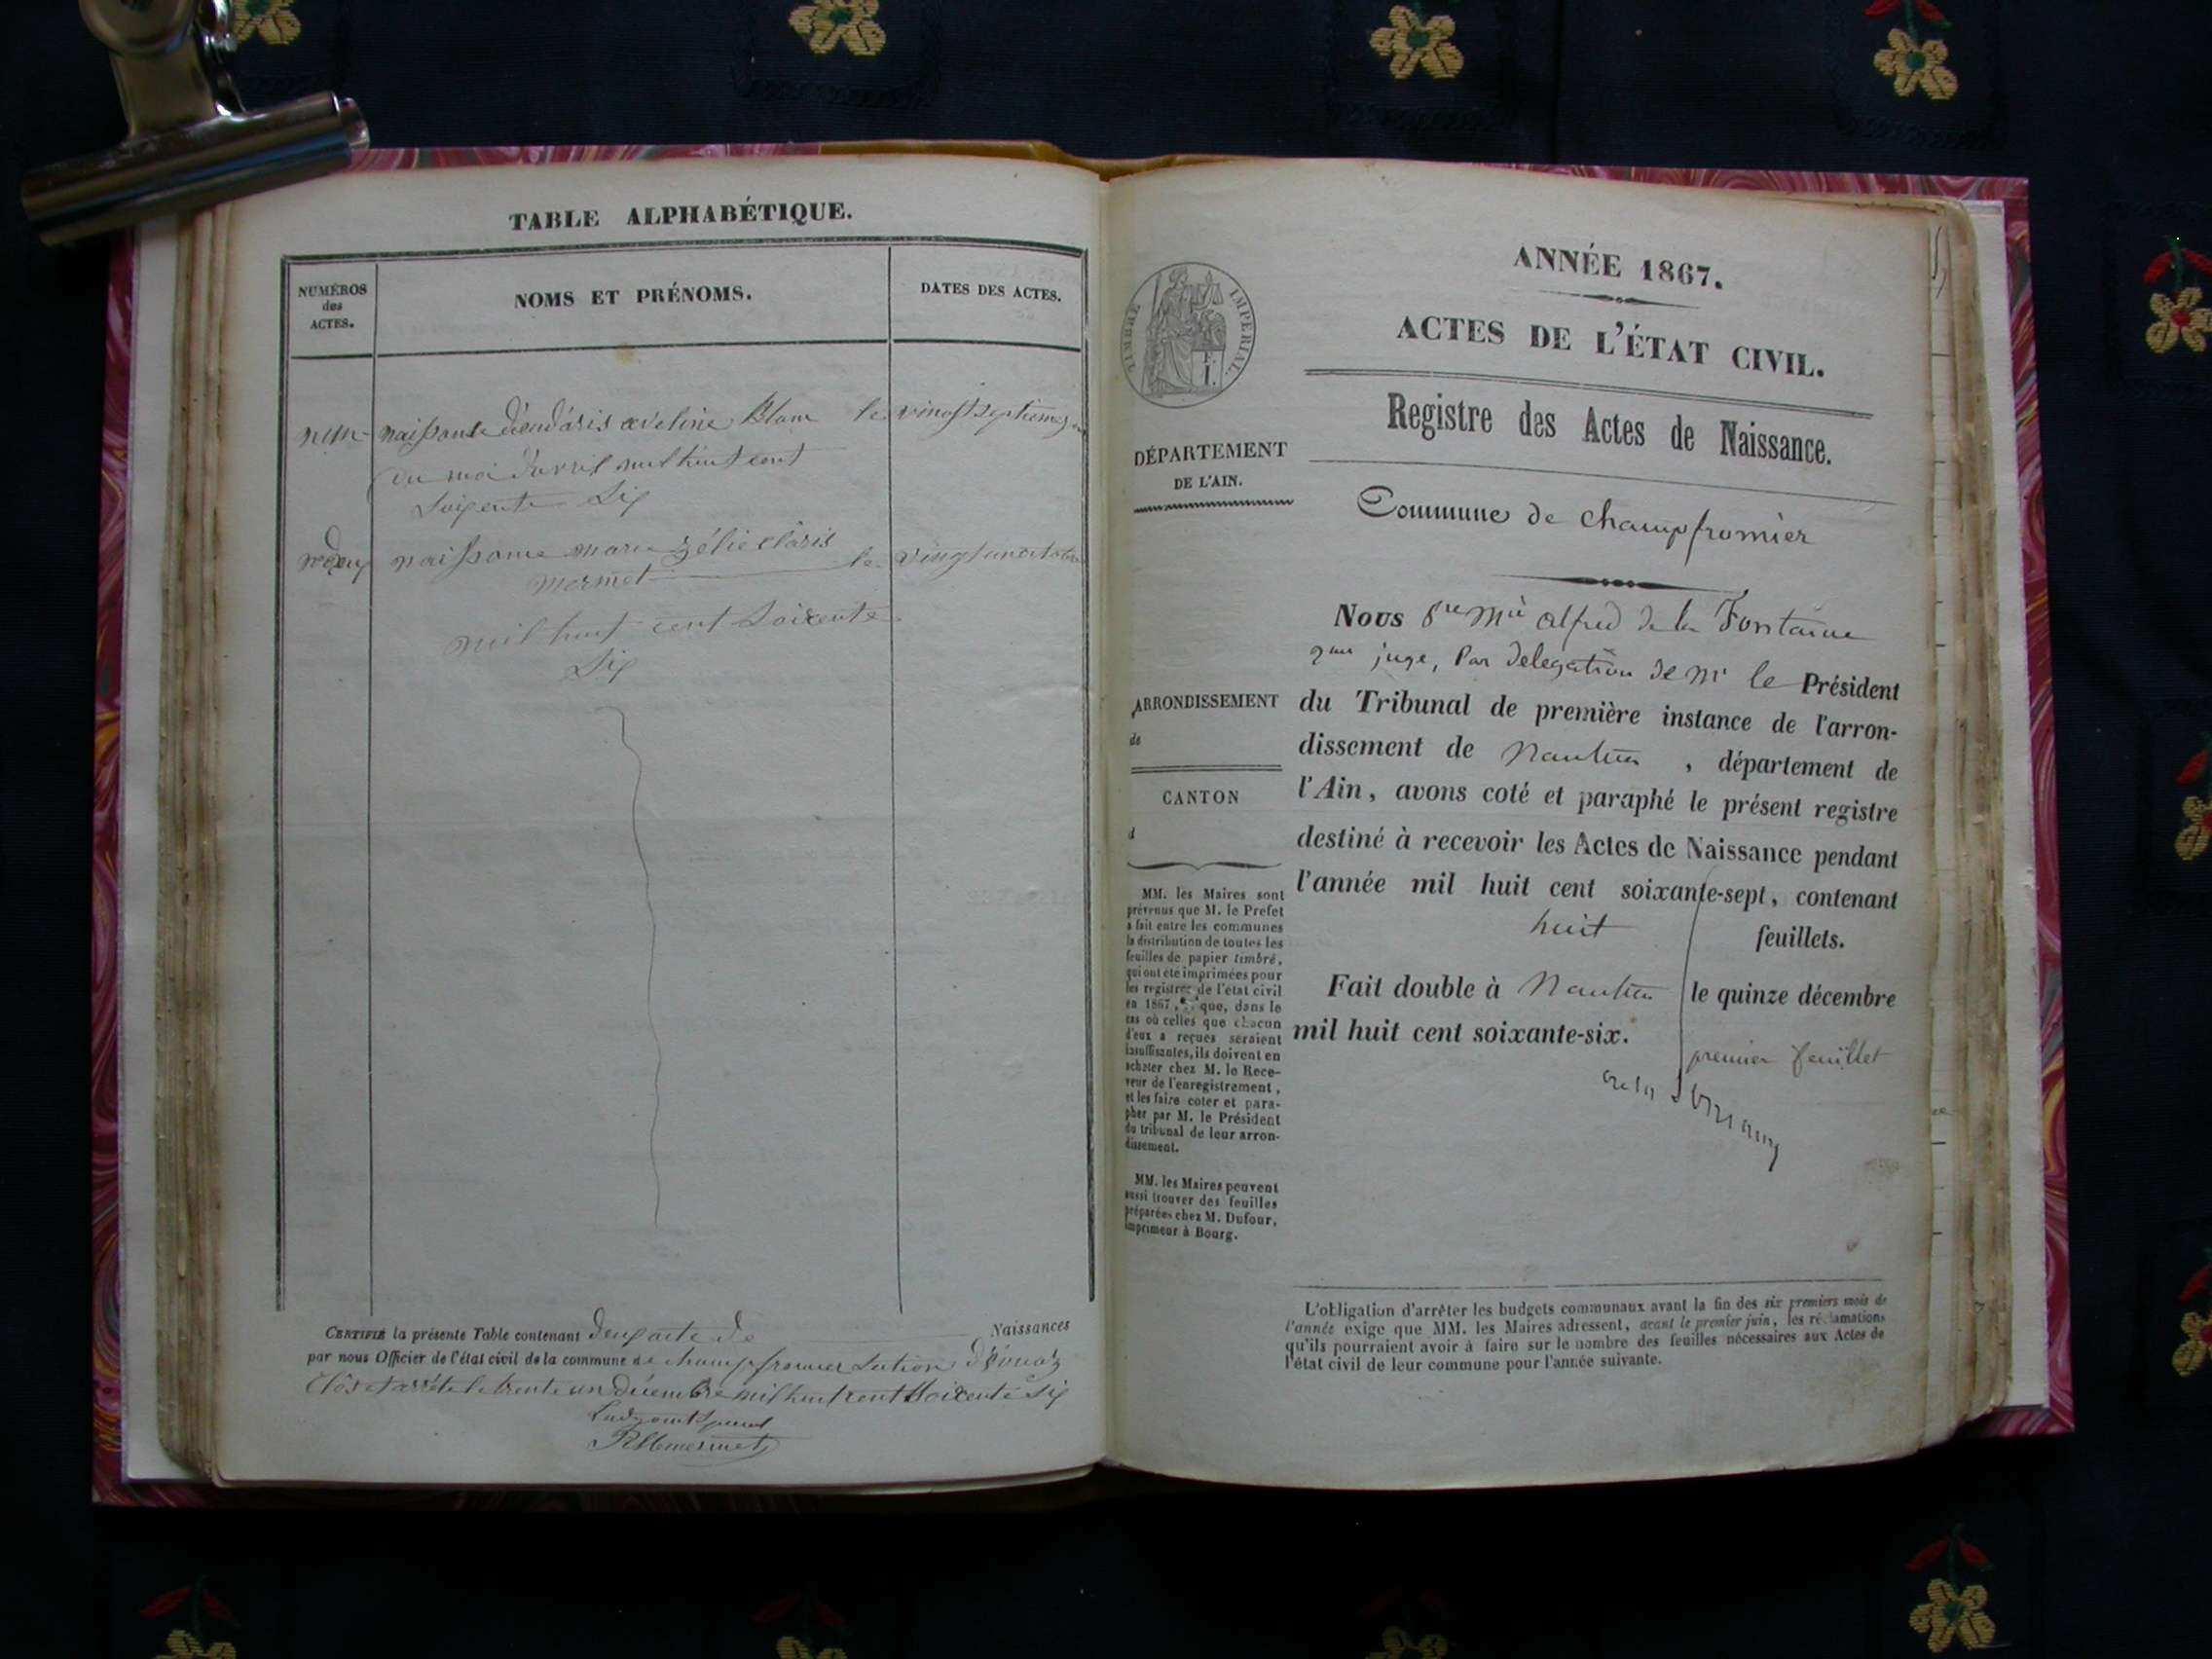 TABLE ALPHABÉTIQUE.
NUMÉROS
des
ACTES.
NOMS ET PRÉNOMS.
DATES DES ACTES.
naissance aveline Blanc le vingt septieme
du moi d'avril mil huit cent
soixente six
naissance marie zélie
mermet le vingt un octobre
mil huit cent soixente
six
CERTIFIÉ la présente Table contenant deux acte de Naissances
par nous Officier de l'état civil de la commune de champfromier section d'Evuaz
Clôs et arrété le trente un décembre mil huit cent soixente six
TIMBRE IMPERIAL.
ANNÉE 1867.
ACTES DE L'ÉTAT CIVIL.
Registre des Actes de Naissance.
DÉPARTEMENT
DE L'AIN.
Commune de champfromier
Nous alfred de la Fontaine
juge, Par delegation de Mr le Président
ARRONDISSEMENT
de
CANTON
d
du Tribunal de première instance de l'arron-
dissement de Nantua , département de
l'Ain, avons coté et paraphé le présent registre
destiné à recevoir les Actes de Naissance pendant
l'année mil huit cent soixante-sept, contenant
huit feuillets.
Fait double à Nantua le quinze décembre
mil huit cent soixante-six.
premier feuillet
MM. les Maires sont
prévenus que M. le Prefet
a fait entre les communes
la distribution de toutes les
feuilles de papier timbré,
qui ont été imprimées pour
les registres de l'état civil
en 1867, que, dans le
cas où celles que chacun
d'eux a reçues seraient
insuffisantes, ils doivent en
acheter chez M. le Rece-
veur de l'enregistrement,
et les faire coter et para-
pher par M. le Président
du tribunal de leur arron-
dissement.
MM. les Maires peuvent
aussi trouver des feuilles
préparées chez M. Dufour,
imprimeur à Bourg.
L'obligation d'arrêter les budgets communaux avant la fin des six premiers mois de
l'année exige que MM. les Maires adressent, avant le premier juin, les réclamations
qu'ils pourraient avoir à faire sur le nombre des feuilles nécessaires aux Actes de
l'état civil de leur commune pour l'année suivante.